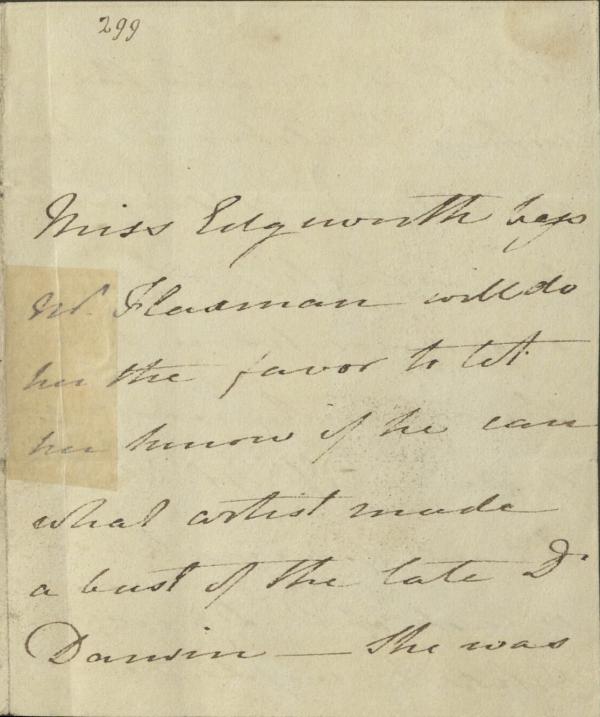 299
Miss Edgworth begs
Mr. Flaxman will do
her the favor to let
her know if he can
what artist made
a bust of the late Dr
Darwin — She was